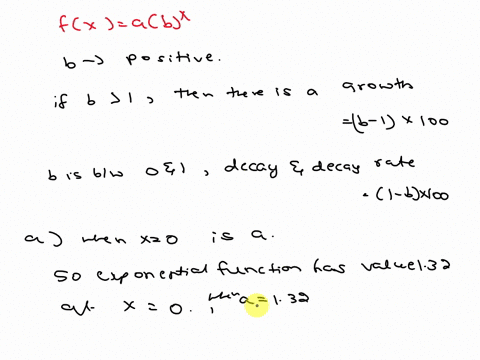 f(x)=a(b)^x
b → positive.
if b >1, then there is a growth
=(b-1) × 100
b is b/w 0 & 1, decay & decay rate
= (1-b)×100
a) when x=0 is a.
So exponential function has value 1.32
at x = 0. , when a = 1.32